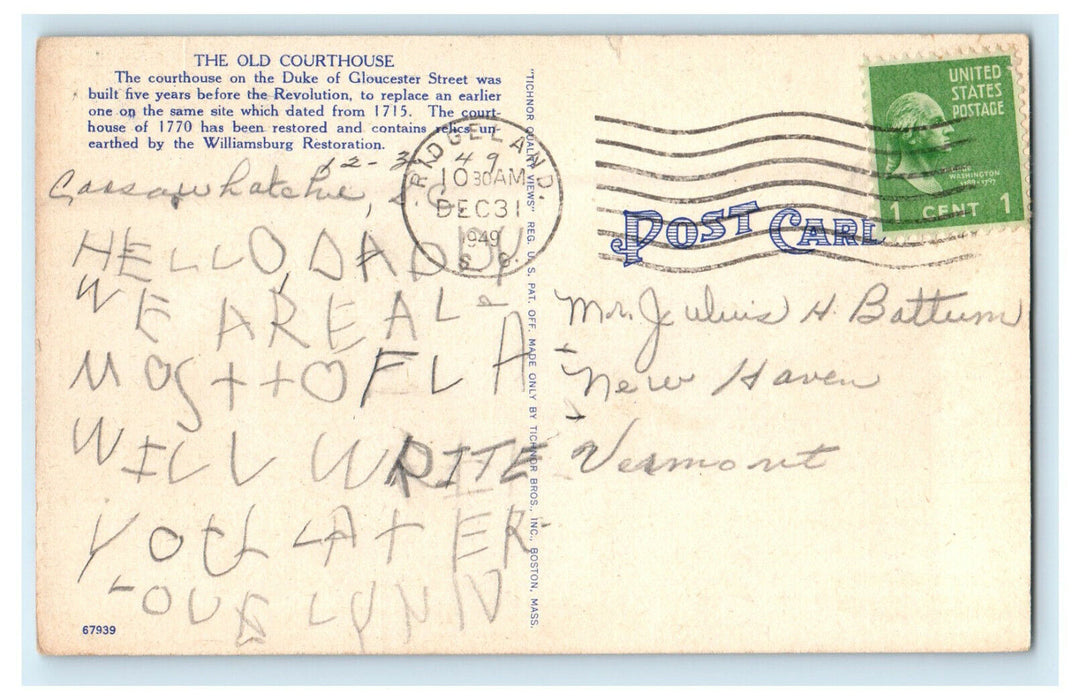 THE OLD COURTHOUSE
The courthouse on the Duke of Gloucester Street was
built five years before the Revolution, to replace an earlier
one on the same site which dated from 1715. The court-
house of 1770 has been restored and contains relics un-
earthed by the Williamsburg Restoration.
12-31-49
Coosawhatchie, S.C.
HELLO DADDY
WE ARE AL-
MOST TO FLA
WILL WRITE
YOU LATER
LOVE LYNN
67939
"TICHNOR QUALITY VIEWS" REG. U. S. PAT. OFF. MADE ONLY BY TICHNOR BROS., INC., BOSTON, MASS.
RIDGELAND
10 30 AM
DEC 31
1949
S. C.
UNITED
STATES
POSTAGE
WASHINGTON
1789-1797
1 CENT 1
POST CARD
Mr. Julius H. Battum
New Haven
Vermont